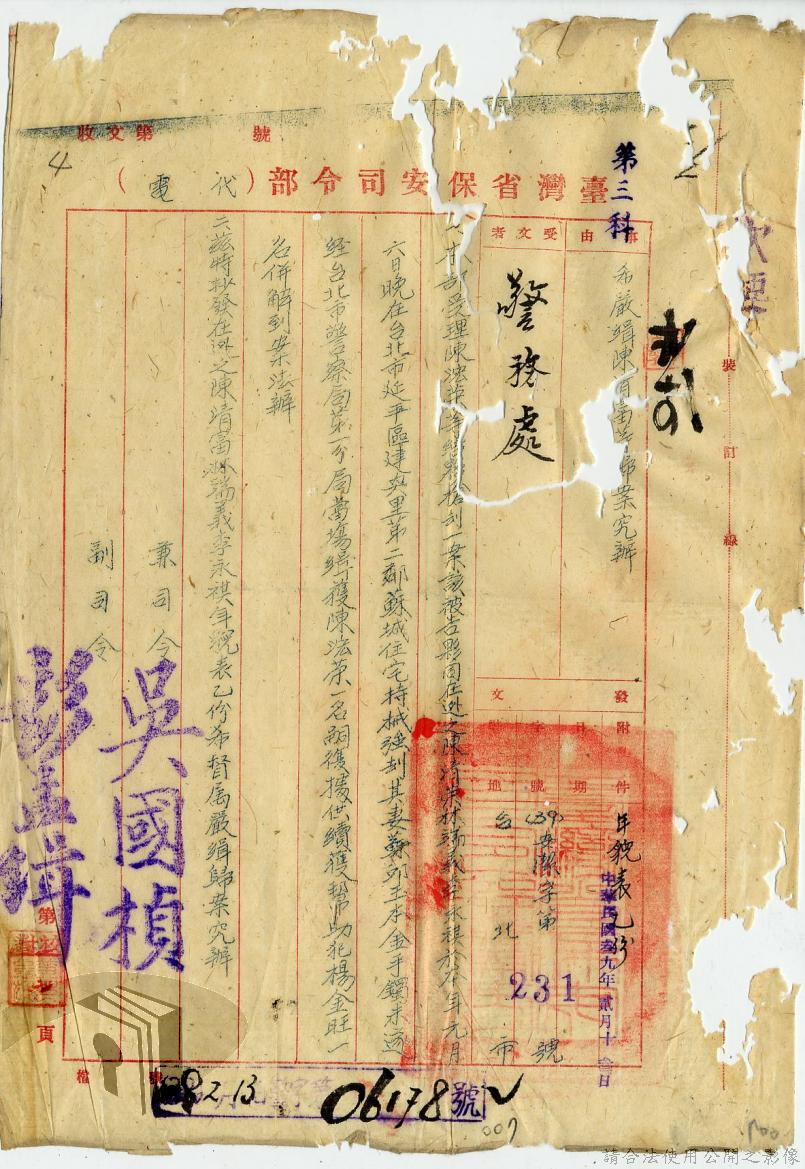 收文第 號
4
臺灣省保安司令部（代電）
第三科
事由
希嚴緝陳清富等歸案究辦
受文者
警務處
發文
附件
年貌表乙份
日期
中華民國叁九年貳月十 日
字號
(39)安潔字第 231 號
地
台北市
一、本部受理陳法榮等結夥搶刼一案該被告夥同在逃之陳清 林瑞義李永祺於本年元月
六日晚在台北市延平區建興里第二鄰蘇城住宅持械強刼其妻鄭 玉本金手鐲未遂
經台北市警察局第一分局當場緝獲陳法榮一名嗣後據供續獲幫助犯楊金旺一
名併解到案法辦
二、茲特抄發在逃之陳清富林瑞義李永祺年貌表乙份希督屬嚴緝歸案究辦
兼司令 吳國楨
副司令 彭孟緝
裝 訂 線
第 頁
檔 號
2.13
06178號
007
請合法使用公開之影像